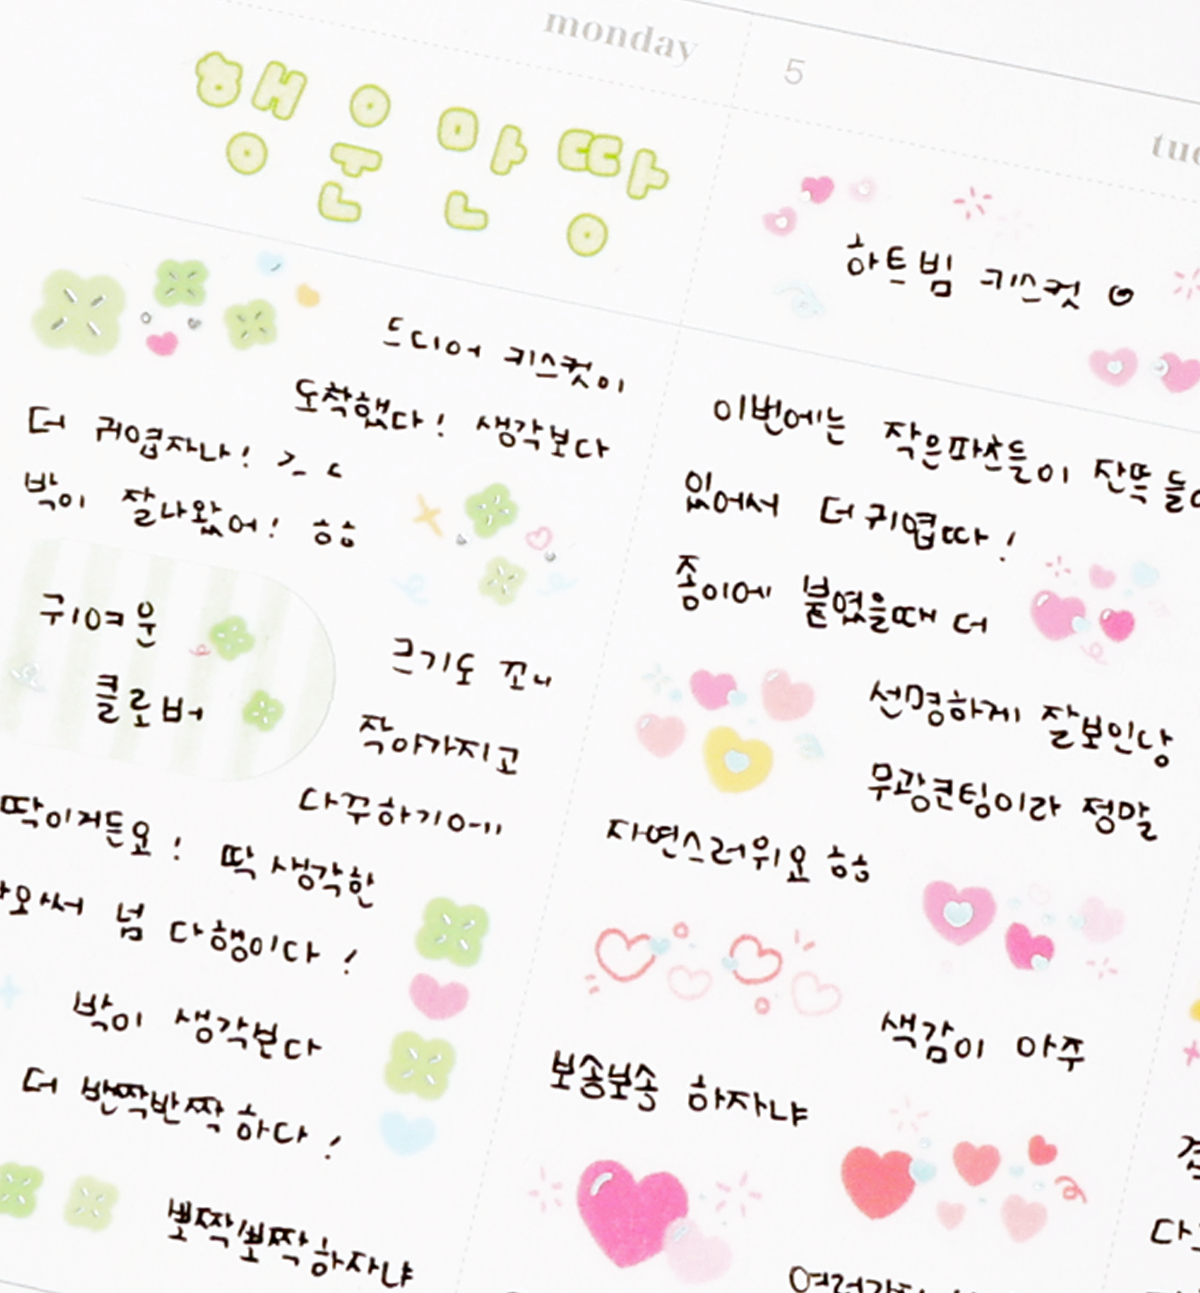 monday
행운만땅
드디어 키스컷이
도착했다! 생각보다
더 귀엽자나! >_<
박이 잘나왔어! ㅎㅎ
귀여운
클로버
크기도 꼬니
작아가지고
다꾸하기에
딱이거든요! 딱 생각한
나와서 넘 다행이다!
박이 생각보다
더 반짝반짝 하다!
뽀짝뽀짝하자냐
5
하트빔 키스컷
이번에는 작은파츠들이 잔뜩
있어서 더 귀엽따!
종이에 붙였을때 더
선명하게 잘보인당
무광코팅이라 정말
자연스러워요 ㅎㅎ
색감이 아주
보송보송 하자냐